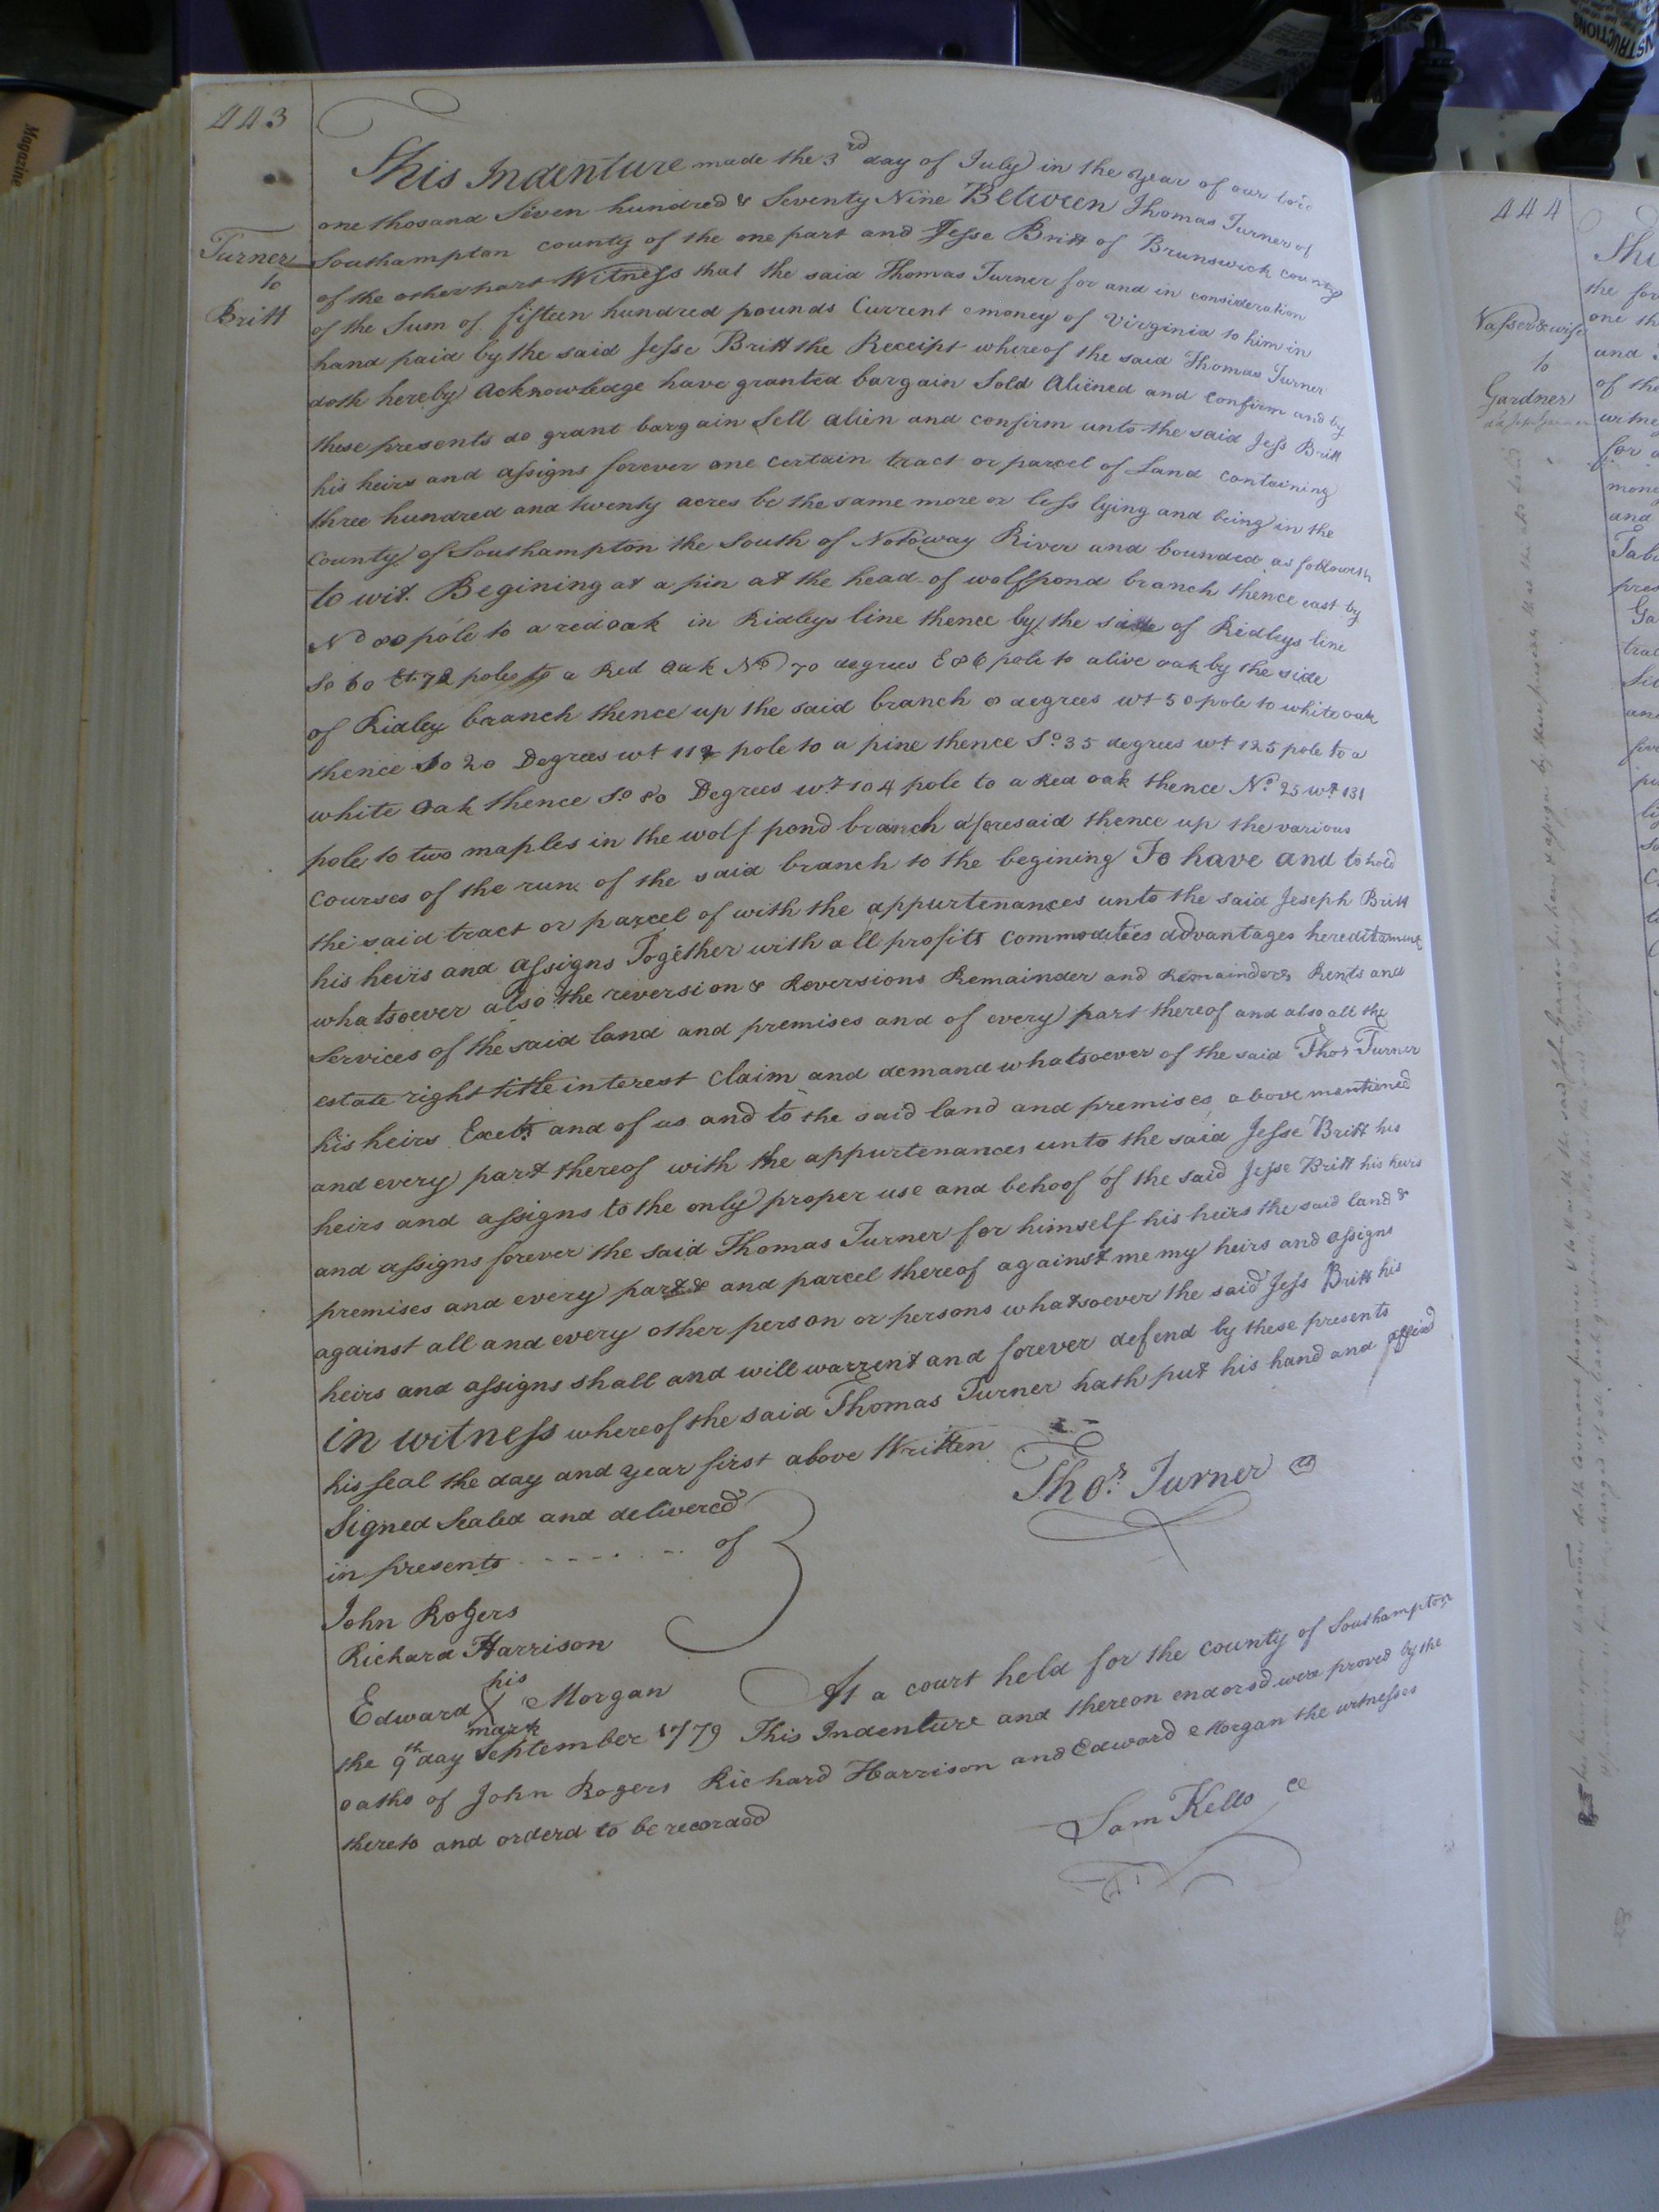 443
This Indenture made the 3rd day of July in the year of our lord
one thosand Seven hundred & Seventy Nine Between Thomas Turner of
Southampton county of the one part and Jesse Britt of Brunswick county
of the other part Witness that the said Thomas Turner for and in consideration
of the Sum of fifteen hundred pounds Current money of Virginia to him in
hand paid by the said Jesse Britt the Receipt whereof the said Thomas Turner
doth hereby Acknowledge have granted bargain Sold Aliened and Confirm and by
these presents do grant bargain Sell alien and confirm unto the said Jess Britt
his heirs and assigns forever one certain tract or parcel of Land containing
three hundred and twenty acres be the same more or less lying and being in the
County of Southampton the South of Notoway River and bounded as followeth
to wit. Begining at a pin at the head of wolf pond branch thence east by
No 80 pole to a red oak in Ridleys line thence by the side of Ridleys line
So 60 Et. 72 poles to a Red Oak No 70 degrees E 86 pole to alive oak by the side
of Ridley branch thence up the said branch 8 degrees wt 50 pole to white oak
thence So 20 Degrees wt 112 pole to a pine thence So 35 degrees wt 125 pole to a
white Oak thence So 80 Degrees wt 104 pole to a Red oak thence No 25 wt 131
pole to two maples in the wolf pond branch aforesaid thence up the various
courses of the run of the said branch to the begining To have and to hold
the said tract or parcel of with the appurtenances unto the said Jeseph Britt
his heiris and assigns Together with all profits commoditees advantages hereditaments
whatsoever also the reversion & Reversions Remainder and Remainders Rents and
Services of the said land and premises and of every part thereof and also all the
estate right title interest claim and demand whatsoever of the said Thos Turner
his heirs Exets and of us and to the said land and premises above mentioned
and every part thereof with the appurtenances unto the said Jesse Britt his
heirs and assigns to the only proper use and behoof of the said Jesse Britt his heirs
and assigns forever the said Thomas Turner for himself his heirs the said land &
premises and every part & and parcel thereof against me my heirs and assigns
against all and every other person or persons whatsoever the said Jess Britt his
heirs and assigns shall and will warrent and forever defend by these presents
in witness whereof the said Thomas Turner hath put his hand and affixd
his seal the day and year first above Written
Thos. Turner
Signed Sealed and delivered
in presents - - - - - - - of
John Rogers
Richard Harrison
his
Edward X Morgan
mark
At a court held for the county of Southampton
the 9th day September 1779 This Indenture and thereon endorsd were proved by the
oaths of John Rogers Richard Harrison and Edward Morgan the witnesses
thereto and orderd to be recorded
Sam Kello CC
Turner
to
Britt
444
Vasser & wife
to
Gardner
the for
one th
and
of the
witne
for a
mone
and
pres
Ga
Magazine